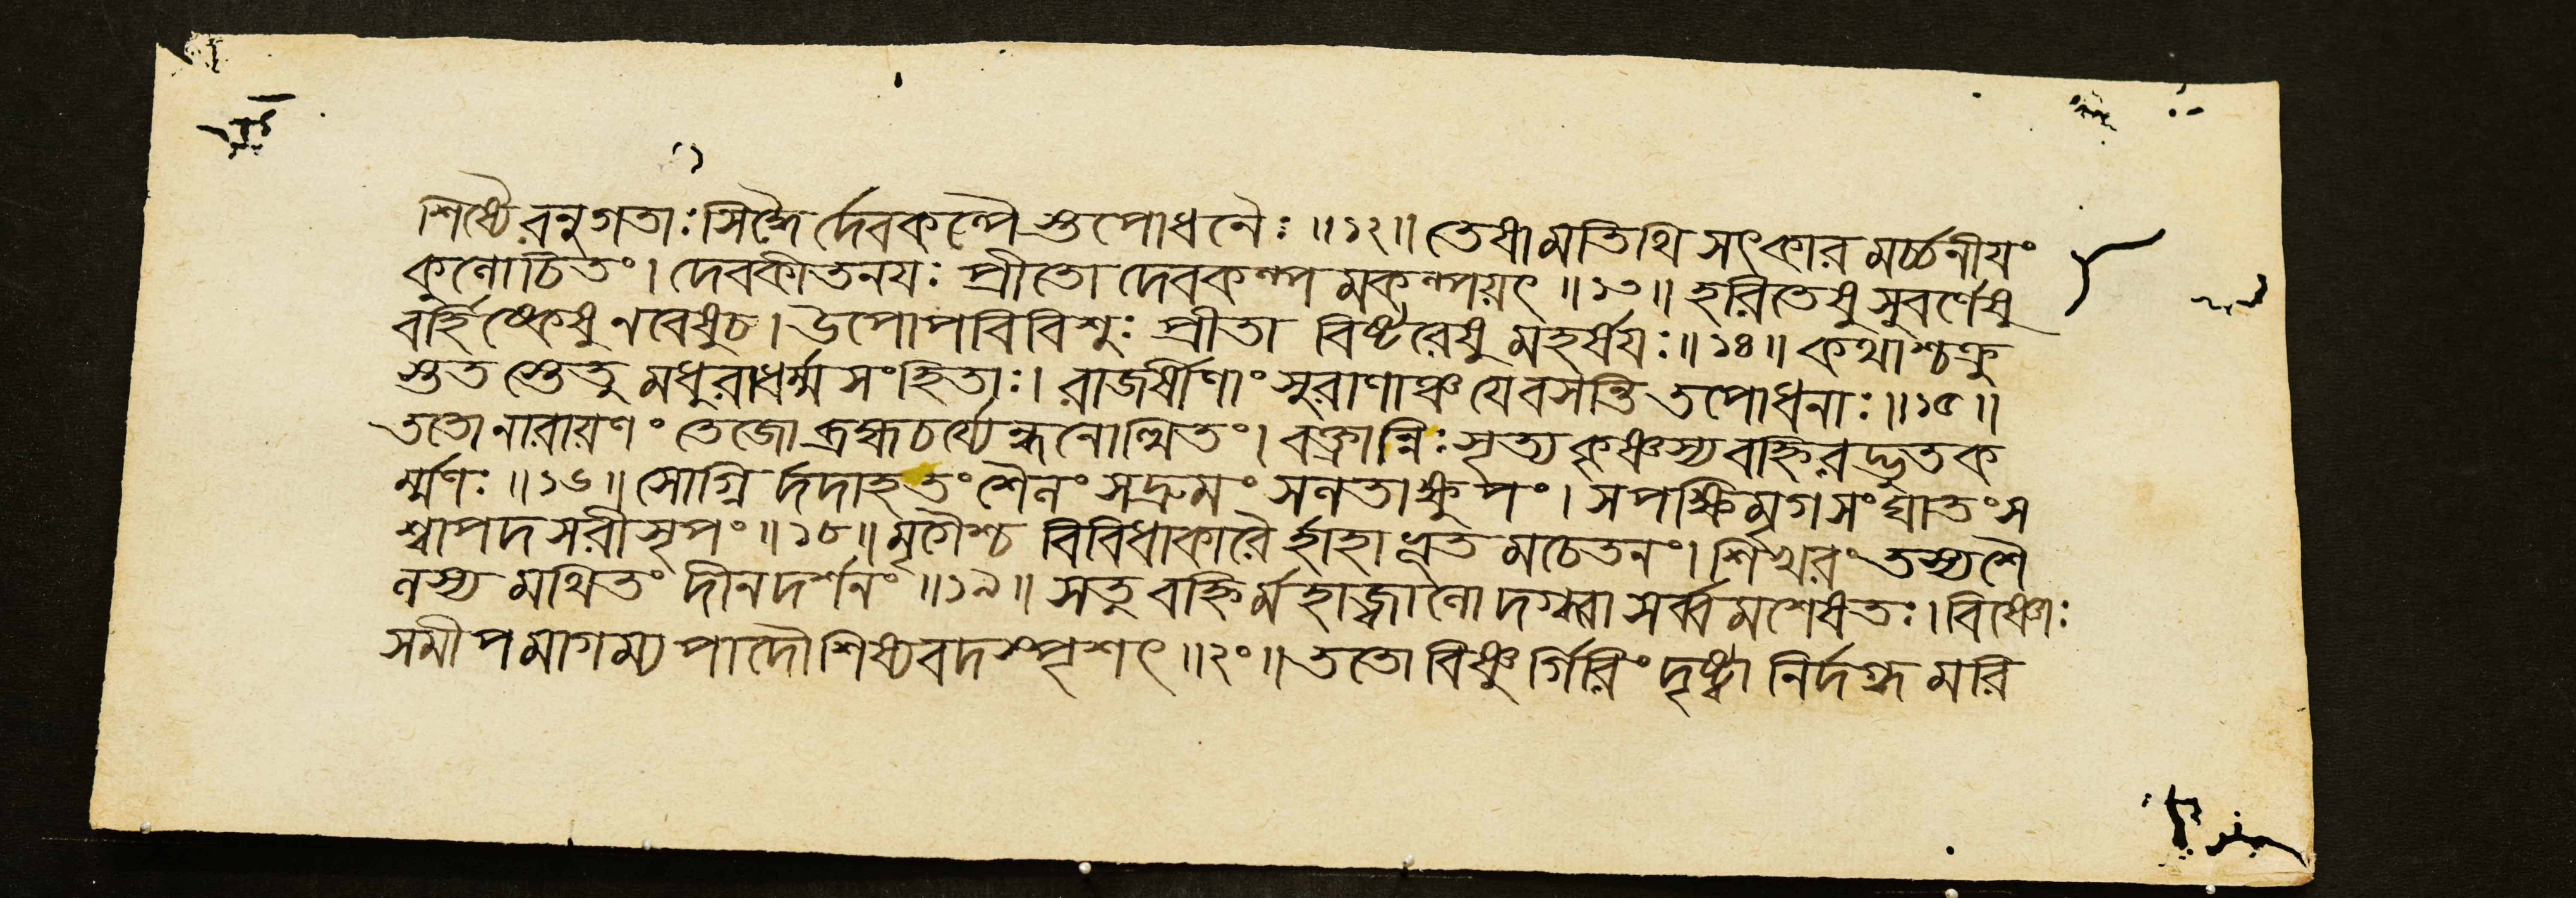 শিষ্যৈরনুগতাঃ সিদ্ধৈর্দেবকল্পৈস্তপোধনৈঃ ॥১২॥ তেষামতিথিসৎকারমর্চ্চনীয়ং
কুলোচিতং। দেবকীতনয়ঃ প্রীতো দেবকল্পমকল্পয়ৎ ॥১৩॥ হরিতেষু সুবর্ণেষু
বর্হিষ্কেষু নবেষু চ। উপোপবিবিশুঃ প্রীতা বিষ্টরেষু মহর্ষয়ঃ ॥১৪॥ কথাশ্চক্রু
স্তত স্তেতু মধুরাধর্ম্মসংহিতাঃ। রাজর্ষীণাং সুরাণাঞ্চ যে বসন্তি তপোধনাঃ ॥১৫॥
ততো নারায়ণং তেজো ব্রহ্মচর্য্যেন্ধনোত্থিতং। বক্ত্রান্নিঃসৃত্য কৃষ্ণস্য বহ্নিরদ্ভুতক
র্ম্মণঃ ॥১৬॥ সোগ্নির্দদাহ তং শৈলং সদ্রুমং সলতাক্ষুপং। সপক্ষিমৃগসংঘাতং স
শ্বাপদসরীসৃপং ॥১৮॥ মৃগৈশ্চ বিবিধাকারৈ র্হাহাভূতমচেতনং। শিখরং তস্য শৈ
লস্য মথিতং দীনদর্শনং ॥১৯॥ সতু বহ্নির্মহাজ্বালো দগ্ধ্বা সর্ব্বমশেষতঃ। বিষ্ণোঃ
সমীপমাগম্য পাদৌ শিষ্যবদস্পৃশৎ ॥২০॥ ততো বিষ্ণুর্গিরিং দৃষ্ট্বা নির্দগ্ধমরি